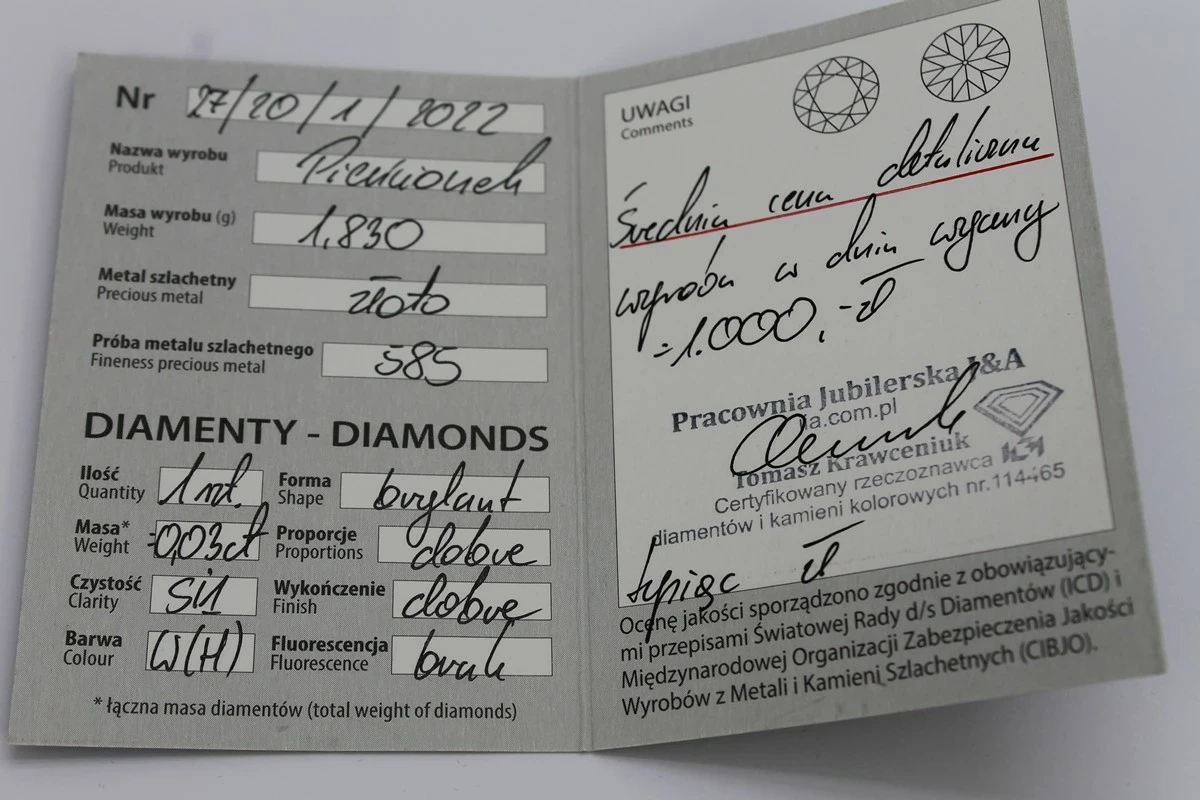 Nr 27/20/1/2022
Nazwa wyrobu
Produkt
Pierścionek
Masa wyrobu (g)
Weight
1,830
Metal szlachetny
Precious metal
złoto
Próba metalu szlachetnego
Fineness precious metal
585
DIAMENTY - DIAMONDS
Ilość
Quantity
1 szt.
Forma
Shape
brylant
Masa*
Weight
=0,03ct
Proporcje
Proportions
dobre
Czystość
Clarity
SI1
Wykończenie
Finish
dobre
Barwa
Colour
W(H)
Fluorescencja
Fluorescence
brak
* łączna masa diamentów (total weight of diamonds)
UWAGI
Comments
Średnia cena detaliczna
wyrobu w dniu wyceny
=1.000,-zł
Pracownia Jubilerska J&A
ja.com.pl
Tomasz Krawceniuk
Certyfikowany rzeczoznawca
diamentów i kamieni kolorowych nr.114465
tysiąc zł
Ocenę jakości sporządzono zgodnie z obowiązujący-
mi przepisami Światowej Rady d/s Diamentów (ICD) i
Międzynarodowej Organizacji Zabezpieczenia Jakości
Wyrobów z Metali i Kamieni Szlachetnych (CIBJO).